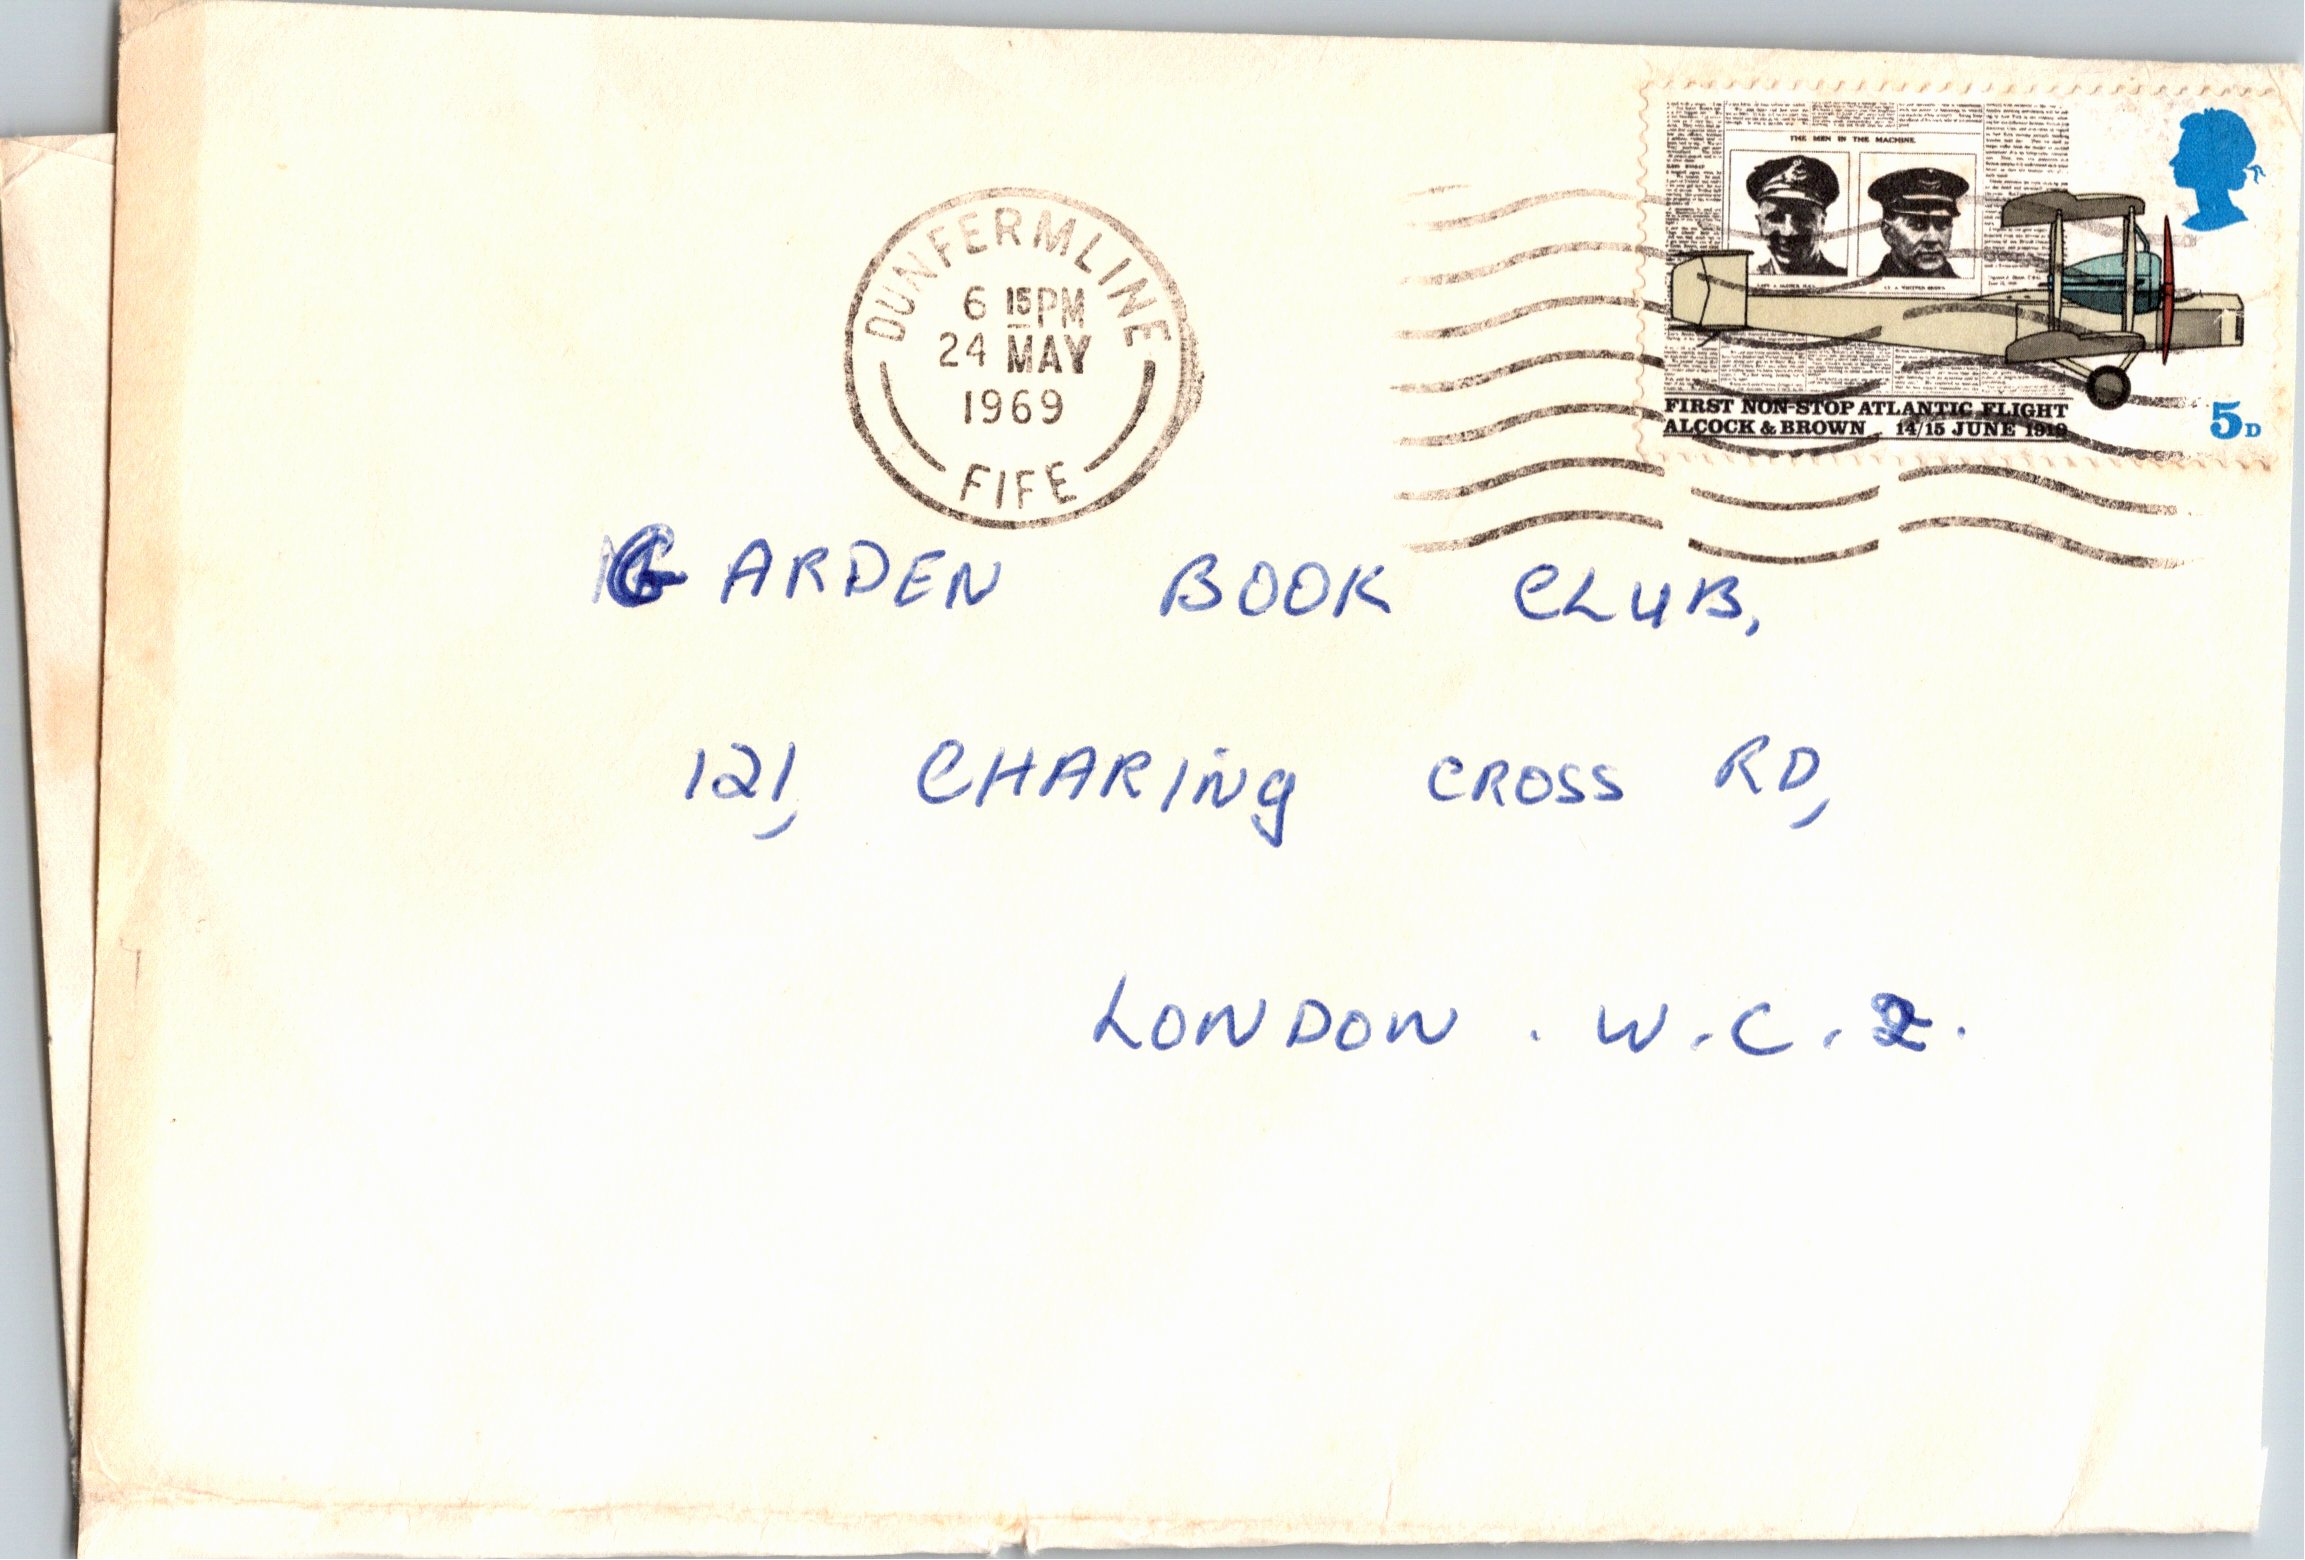 DUNFERMLINE
6 15PM
24 MAY
1969
FIFE
THE MEN IN THE MACHINE
FIRST NON-STOP ATLANTIC FLIGHT
ALCOCK & BROWN 14/15 JUNE 1919
5D
GARDEN BOOK CLUB,
121, CHARING CROSS RD,
LONDON . W.C.2.